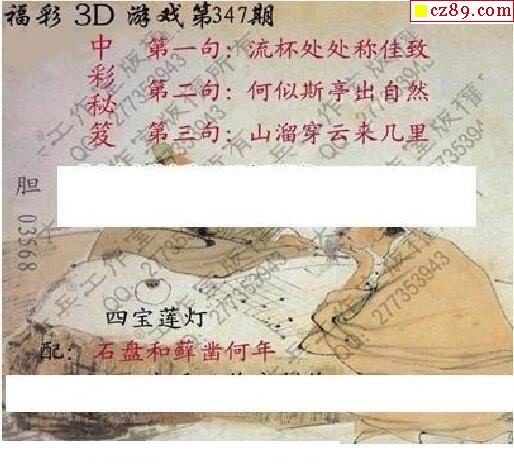 福彩 3D 游戏第347期
cz89.com
中彩秘笈
第一句：流杯处处称佳致
第二句：何似斯亭出自然
第三句：山溜穿云来几里
胆 03568
四宝莲灯
配：石盘和藓凿何年
QQ：277353943
277353943